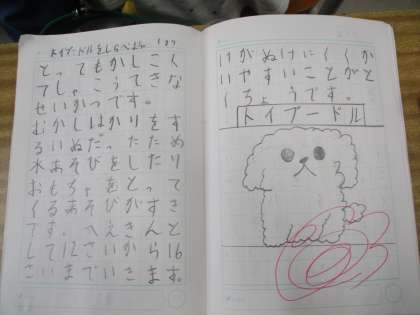 トイプードルをしらべよう
とってもかしこく
てしゃこうてきな
せいかつです。
むかしはかりをす
るいぬだったため
水あそびをしたり
おもちゃをとって
くるあそびがすき
です。へえきんと
して12さいから16
さいまでいきます。
けがぬけにくくか
いやすいことがと
くちょうです。
トイプードル